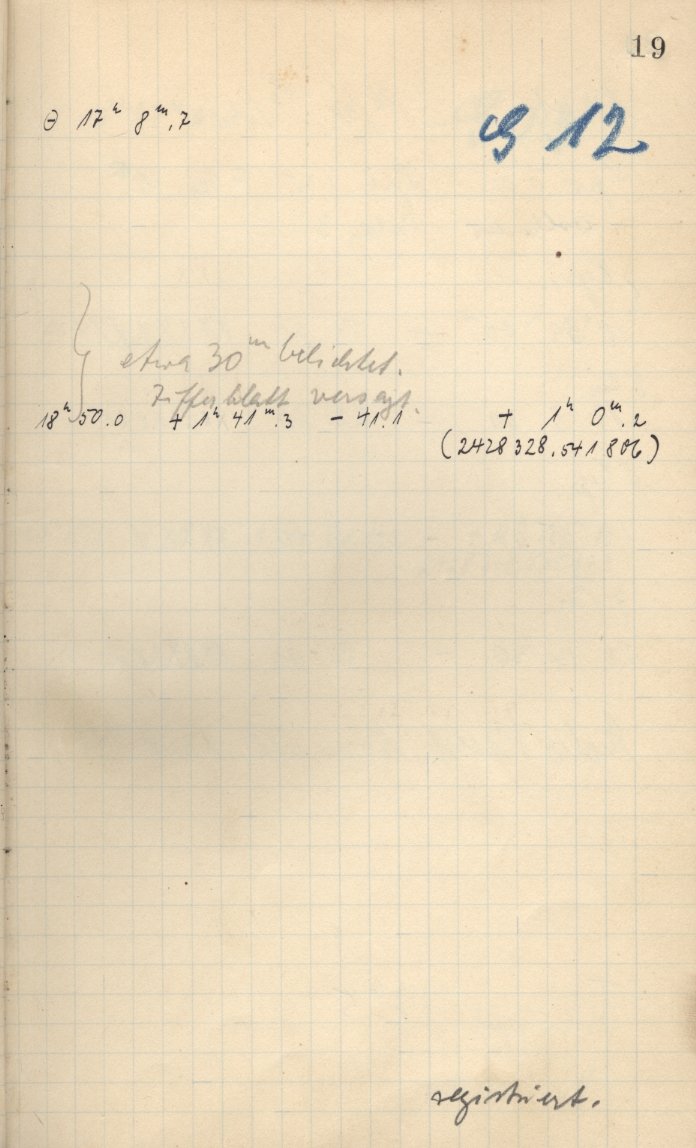 19
θ 17ʰ 8ᵐ,7
G 12
etwa 30ᵐ belichtet.
Zifferblatt versagt.
18ʰ50.0 + 1ʰ 41ᵐ.3 - 41.1 + 1ʰ 0ᵐ.2
(2428328.541806)
registriert.